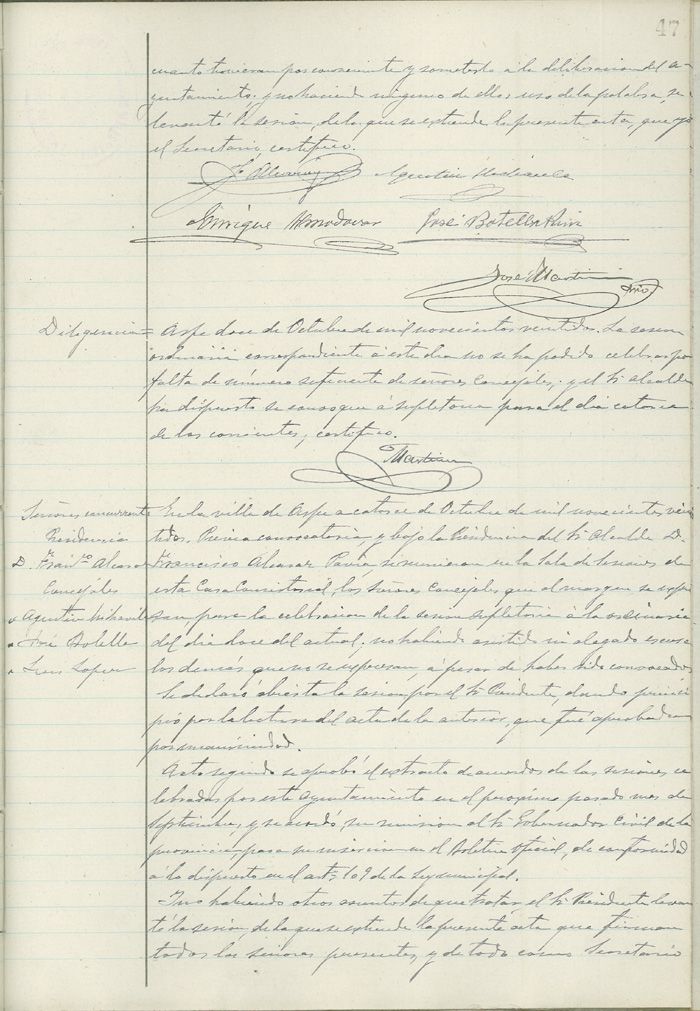 47
cuanto tuvieran por conveniente y someterlo á la deliberacion del a-
yuntamiento; y no haciendo ninguno de ellos uso de la palabra, se
levantó la sesión, de la que se extiende la presente acta, que yo
el Secretario certifico.
Agustin
Enrique Almodovar José Botella Ruiz
José Martinez
Srio
Diligencia= Aspe doce de Octubre de mil novecientos veintidos. La sesion
ordinaria correspondiente á este dia no se ha podido celebrar por
falta de número suficiente de señores Concejales; y el Sr. Alcalde
ha dispuesto se convoque á supletoria para el dia catorce
de los corrientes, certifico.
Martinez
Señores concurrentes
Presidencia
D. Franco. Alcaraz
Concejales
" Agustin
" José Botella
" Luis Lopez
En la villa de Aspe a catorce de Octubre de mil novecientos vein
tidos. Previa convocatoria y bajo la Presidencia del Sr. Alcalde D.
Francisco Alcaraz Pavia, se reunieron en la Sala de Sesiones de
esta Casa Consistorial, los Señores Concejales que al margen se expre
san para la celebracion de la sesion supletoria á la ordinaria
del dia doce del actual; no habiendo asistido ni alegado escusa
los demás que no se expresan, á pesar de haber sido convocados.
Se declaró abierta la sesion por el Sr. Presidente, dando princi
pio por la lectura del acta de la anterior, que fué aprobada
por unanimidad.
Acto seguido se aprobó el extracto de acuerdos de las sesiones ce
lebradas por este Ayuntamiento en el proximo pasado mes de
Septiembre, y se acordó, su remision al Sr. Gobernador Civil de la
provincia, para su insercion en el Boletin Oficial, de conformidad
á lo dispuesto en el artº 109 de la Ley municipal.
Y no habiendo otros asuntos de que tratar el Sr. Presidente levan
tó la sesión, de la que se extiende la presente acta que firman
todos los señores presentes, y de todo como Secretario